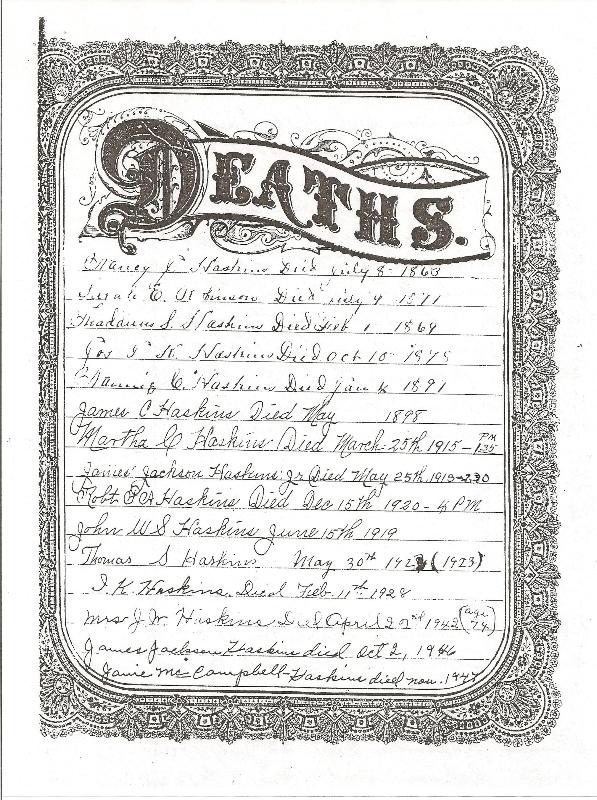 DEATHS.
Nancy J Haskins Died July 8 1863
E. Died July 9 1871
Thaddeus S. Haskins Died Feb 1 1869
Jos K. Haskins Died Oct 10
Nannie C. Haskins Died Jan 1891
James C Haskins Died May 1898
Martha C Haskins Died March 25th 1915 - PM 1:35
James Jackson Haskins Jr Died May 25th 1915
Robt Haskins. Died Dec 15th 1920 - 4 PM
John W S Haskins June 15th 1919
Thomas S Haskins May 30th (1923)
I. K. Haskins. Died Feb 11th 1928
Mrs J. W. Haskins Died April 22nd 1942 (age 74)
James Jackson Haskins died Oct 2, 1946
Janie McCampbell Haskins died nov. 1947